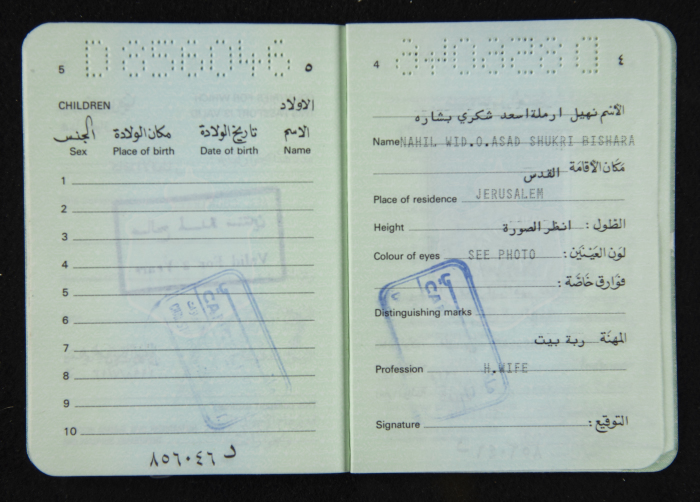 D 856046
5 ٥
CHILDREN الاولاد
الجنس مكان الولادة تاريخ الولادة الاسم
Sex Place of birth Date of birth Name
1
2
3
4
5
6
7
8
9
10
٨٥٦٠٤٦ د
4 ٤
الأسم نهيل ارملة اسعد شكري بشاره
Name NAHIL WID.O.ASAD SHUKRI BISHARA
مكان الأقامة القدس
Place of residence JERUSALEM
الطول: انظر الصورة
Height
لون العينين:
Colour of eyes SEE PHOTO
فوارق خاصة:
Distinguishing marks
المهنة ربة بيت
Profession H.WIFE
التوقيع:
Signature